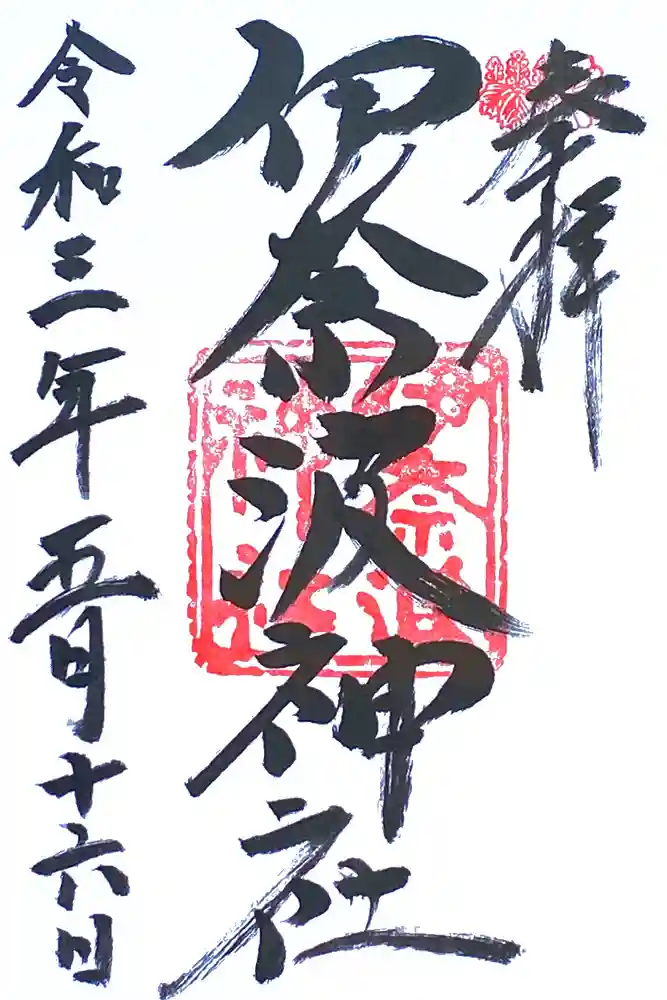 奉拝
伊奈波神社
令和三年五月十六日